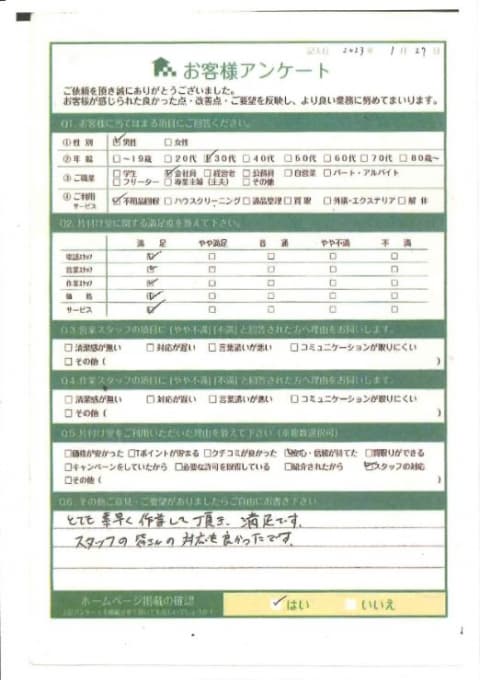 記入日 2023年 1月 27日
お客様アンケート
ご依頼を頂き誠にありがとうございました。
お客様が感じられた良かった点・改善点・ご要望を反映し、より良い業務に努めてまいります。
Q1. お客様に当てはまる項目にご回答ください。
①性 別 □男性 □女性
②年 齢 □~19歳 □20代 □30代 □40代 □50代 □60代 □70代 □80歳~
③ご職業 □学生 □会社員 □経営者 □公務員 □自営業 □パート・アルバイト
□フリーター □専業主婦(主夫) □その他
④ご利用サービス □不用品回収 □ハウスクリーニング □遺品整理 □買取 □外構・エクステリア □解体
Q2. 片付け堂に関する満足度を教えて下さい。
満足 やや満足 普通 やや不満 不満
電話スタッフ □ □ □ □ □
営業スタッフ □ □ □ □ □
作業スタッフ □ □ □ □ □
価格 □ □ □ □ □
サービス □ □ □ □ □
Q3. 営業スタッフの項目に[やや不満][不満]と回答された方へ理由をお伺いします。
□清潔感が無い □対応が遅い □言葉遣いが悪い □コミュニケーションが取りにくい
□その他( )
Q4. 作業スタッフの項目に[やや不満][不満]と回答された方へ理由をお伺いします。
□清潔感が無い □対応が遅い □言葉遣いが悪い □コミュニケーションが取りにくい
□その他( )
Q5. 片付け堂をご利用いただいた理由を教えて下さい(※複数選択可)
□価格が安かった □Tポイントが貯まる □クチコミが良かった □安心・信頼が持てた □買取りができる
□キャンペーンをしていたから □必要な許可を取得している □紹介されたから □スタッフの対応
□その他( )
Q6. その他ご意見・ご要望がありましたらご自由にお書き下さい
とても素早く作業して頂き、満足です。
スタッフの皆さんの対応も良かったです。
ホームページ掲載の確認
はい いいえ